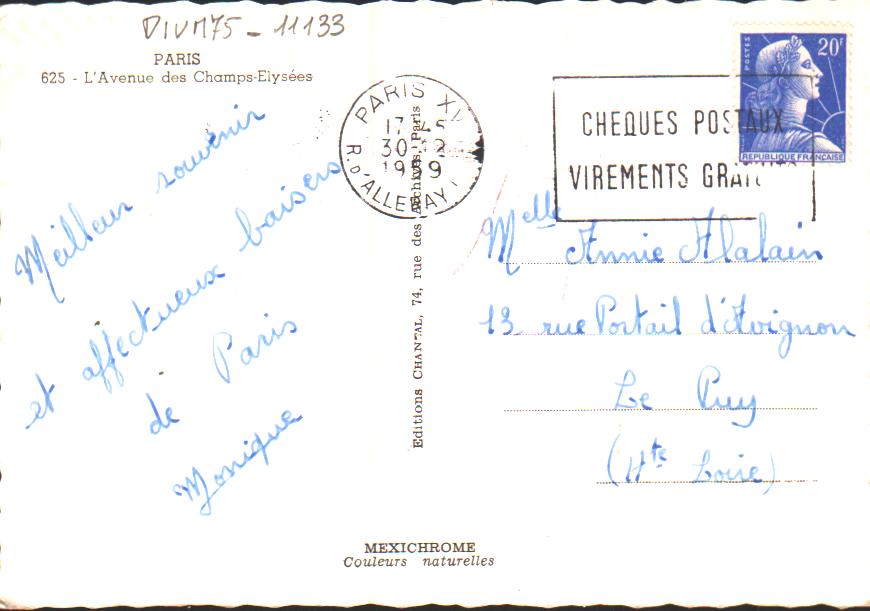 DIVM75 - 11133
PARIS
625 - L'Avenue des Champs-Elysées
Meilleur souvenir
et affectueux baisers
de Paris
Monique
Editions CHANTAL, 74, rue des Archives, Paris
PARIS XV
17 45
30-12
1959
R. D'ALLERAY
CHEQUES POSTAUX
VIREMENTS GRATUITS
POSTES
20F
REPUBLIQUE FRANÇAISE
Melle Annie Alalain
13 rue Portail d'Avignon
Le Puy
(Hte Loire)
MEXICHROME
Couleurs naturelles